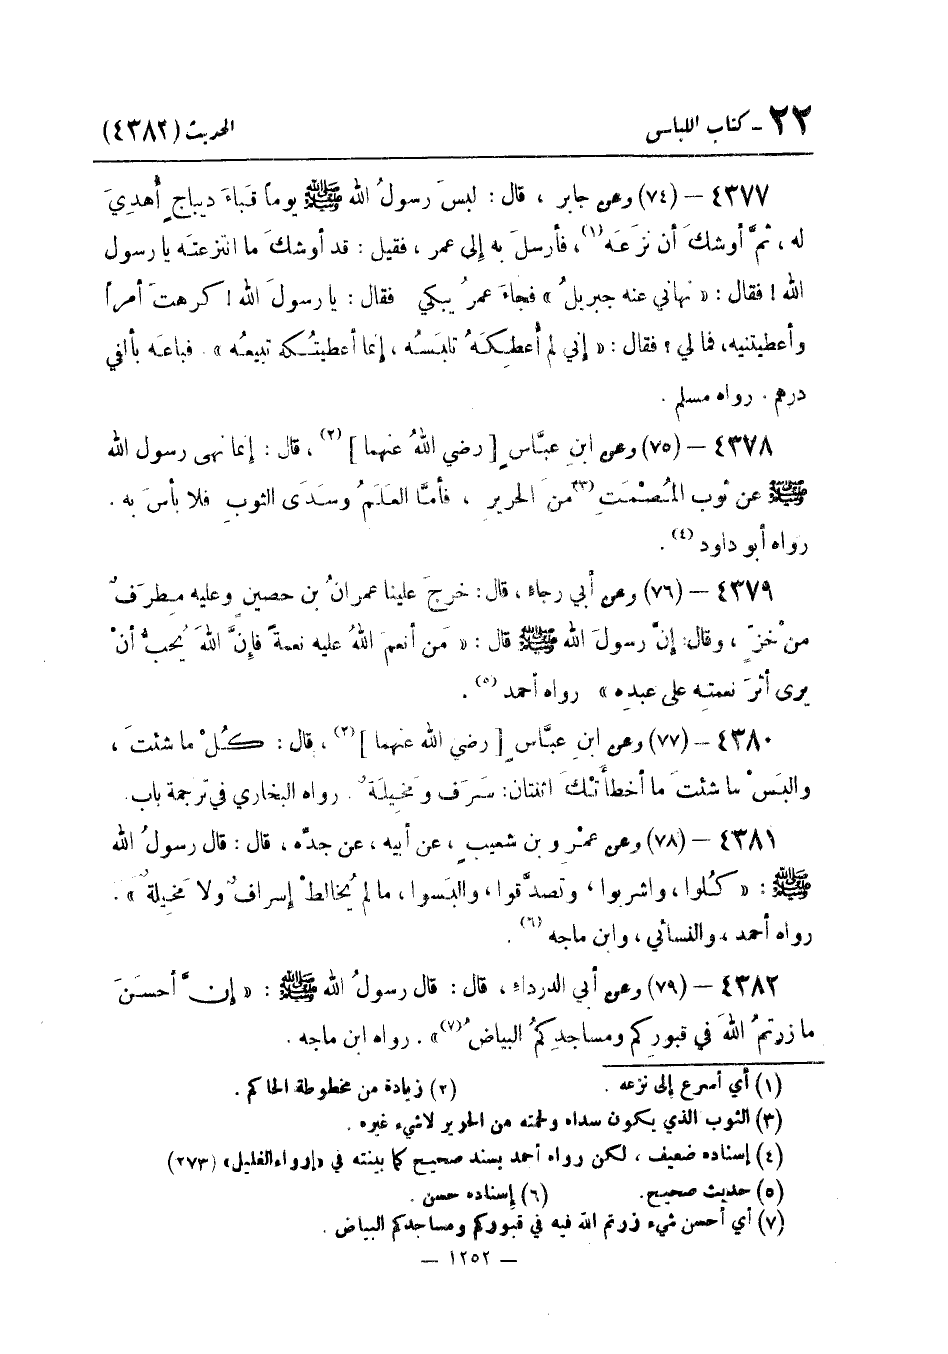 ٢٢ - كتاب اللباس الحديث (٤٣٨٢)
٤٣٧٧ – (٧٤) وعن جابر ، قال : لبسَ رسولُ الله ﷺ يوماً قَباءَ ديباجٍ أُهديَ
له ، ثمَّ أوشكَ أن نزَعَه(١)، فأرسلَ به إِلى عمر ، فقيل : قد أوشكَ ما انتزعتَه يا رسول
الله ! فقال : « نهاني عنه جبريلُ » فجاءَ عمرُ يبكي فقال : يا رسولَ الله ! كرهتَ أمراً
وأعطيتنيه، فما لي ؟ فقال : « إِني لم أُعطِكَهُ تلبَسُه ، إِنما أعطيتُكه تبيعُه » . فباعَه بألفي
درهم . رواه مسلم .
٤٣٧٨ – (٧٥) وعن ابنِ عبَّاسٍ [ رضي اللهُ عنهما ] (٢) ، قال : إِنما نهى رسول الله
ﷺ عن ثوبِ المُصْمَتِ (٣) منَ الحرير ، فأمَّا العَلَمُ وسَدَى الثوبِ فلا بأسَ به .
رواه أبو داود (٤) .
٤٣٧٩ – (٧٦) وعن أبي رجاء ، قال : خرجَ علينا عمرانُ بن حصينٍ وعليه مِطرَفٌ
منْ خزٍّ ، وقال: إِنَّ رسولَ الله ﷺ قال : « مَن أنعمَ اللهُ عليه نعمةً فإِنَّ اللهَ يُحبُّ أنْ
يرى أثرَ نعمتِه على عبدِه » رواه أحمد (٥) .
٤٣٨٠ – (٧٧) وعن ابنِ عبَّاسٍ [ رضي الله عنهما ] (٢) ، قال : كُلْ ما شئتَ ،
والبَسْ ما شئتَ ما أخطأَتْكَ اثنتان: سَرَف ومَخِيلَةٌ . رواه البخاري في ترجمة باب.
٤٣٨١ – (٧٨) وعن عمْرِو بن شعيبٍ ، عن أبيه ، عن جدِّه ، قال : قال رسولُ الله
ﷺ : « كُلوا ، واشربوا ، وتصدَّقوا ، والبَسوا ، ما لم يُخالطْ إِسرافٌ ولا مَخيلةٌ » .
رواه أحمد ، والنسائي ، وابن ماجه (٦) .
٤٣٨٢ – (٧٩) وعن أبي الدرداءِ ، قال : قال رسولُ الله ﷺ : « إِنَّ أحسَنَ
ما زرتمُ اللهَ في قبورِكم ومساجدِكمُ البياضُ(٧)» . رواه ابن ماجه .
(١) أي أسرع إلى نزعه . (٢) زيادة من مخطوطة الحاكم .
(٣) الثوب الذي يكون سداه ولحمته من الحرير لاشيء غيره .
(٤) إسناده ضعيف ، لكن رواه أحمد بسند صحيح كما بينته في «إرواءالغليل» (٢٧٣)
(٥) حديث صحيح. (٦) إسناده حسن .
(٧) أي أحسن شيء زرتم الله فيه في قبوركم ومساجدكم البياض .
– ١٢٥٢ –